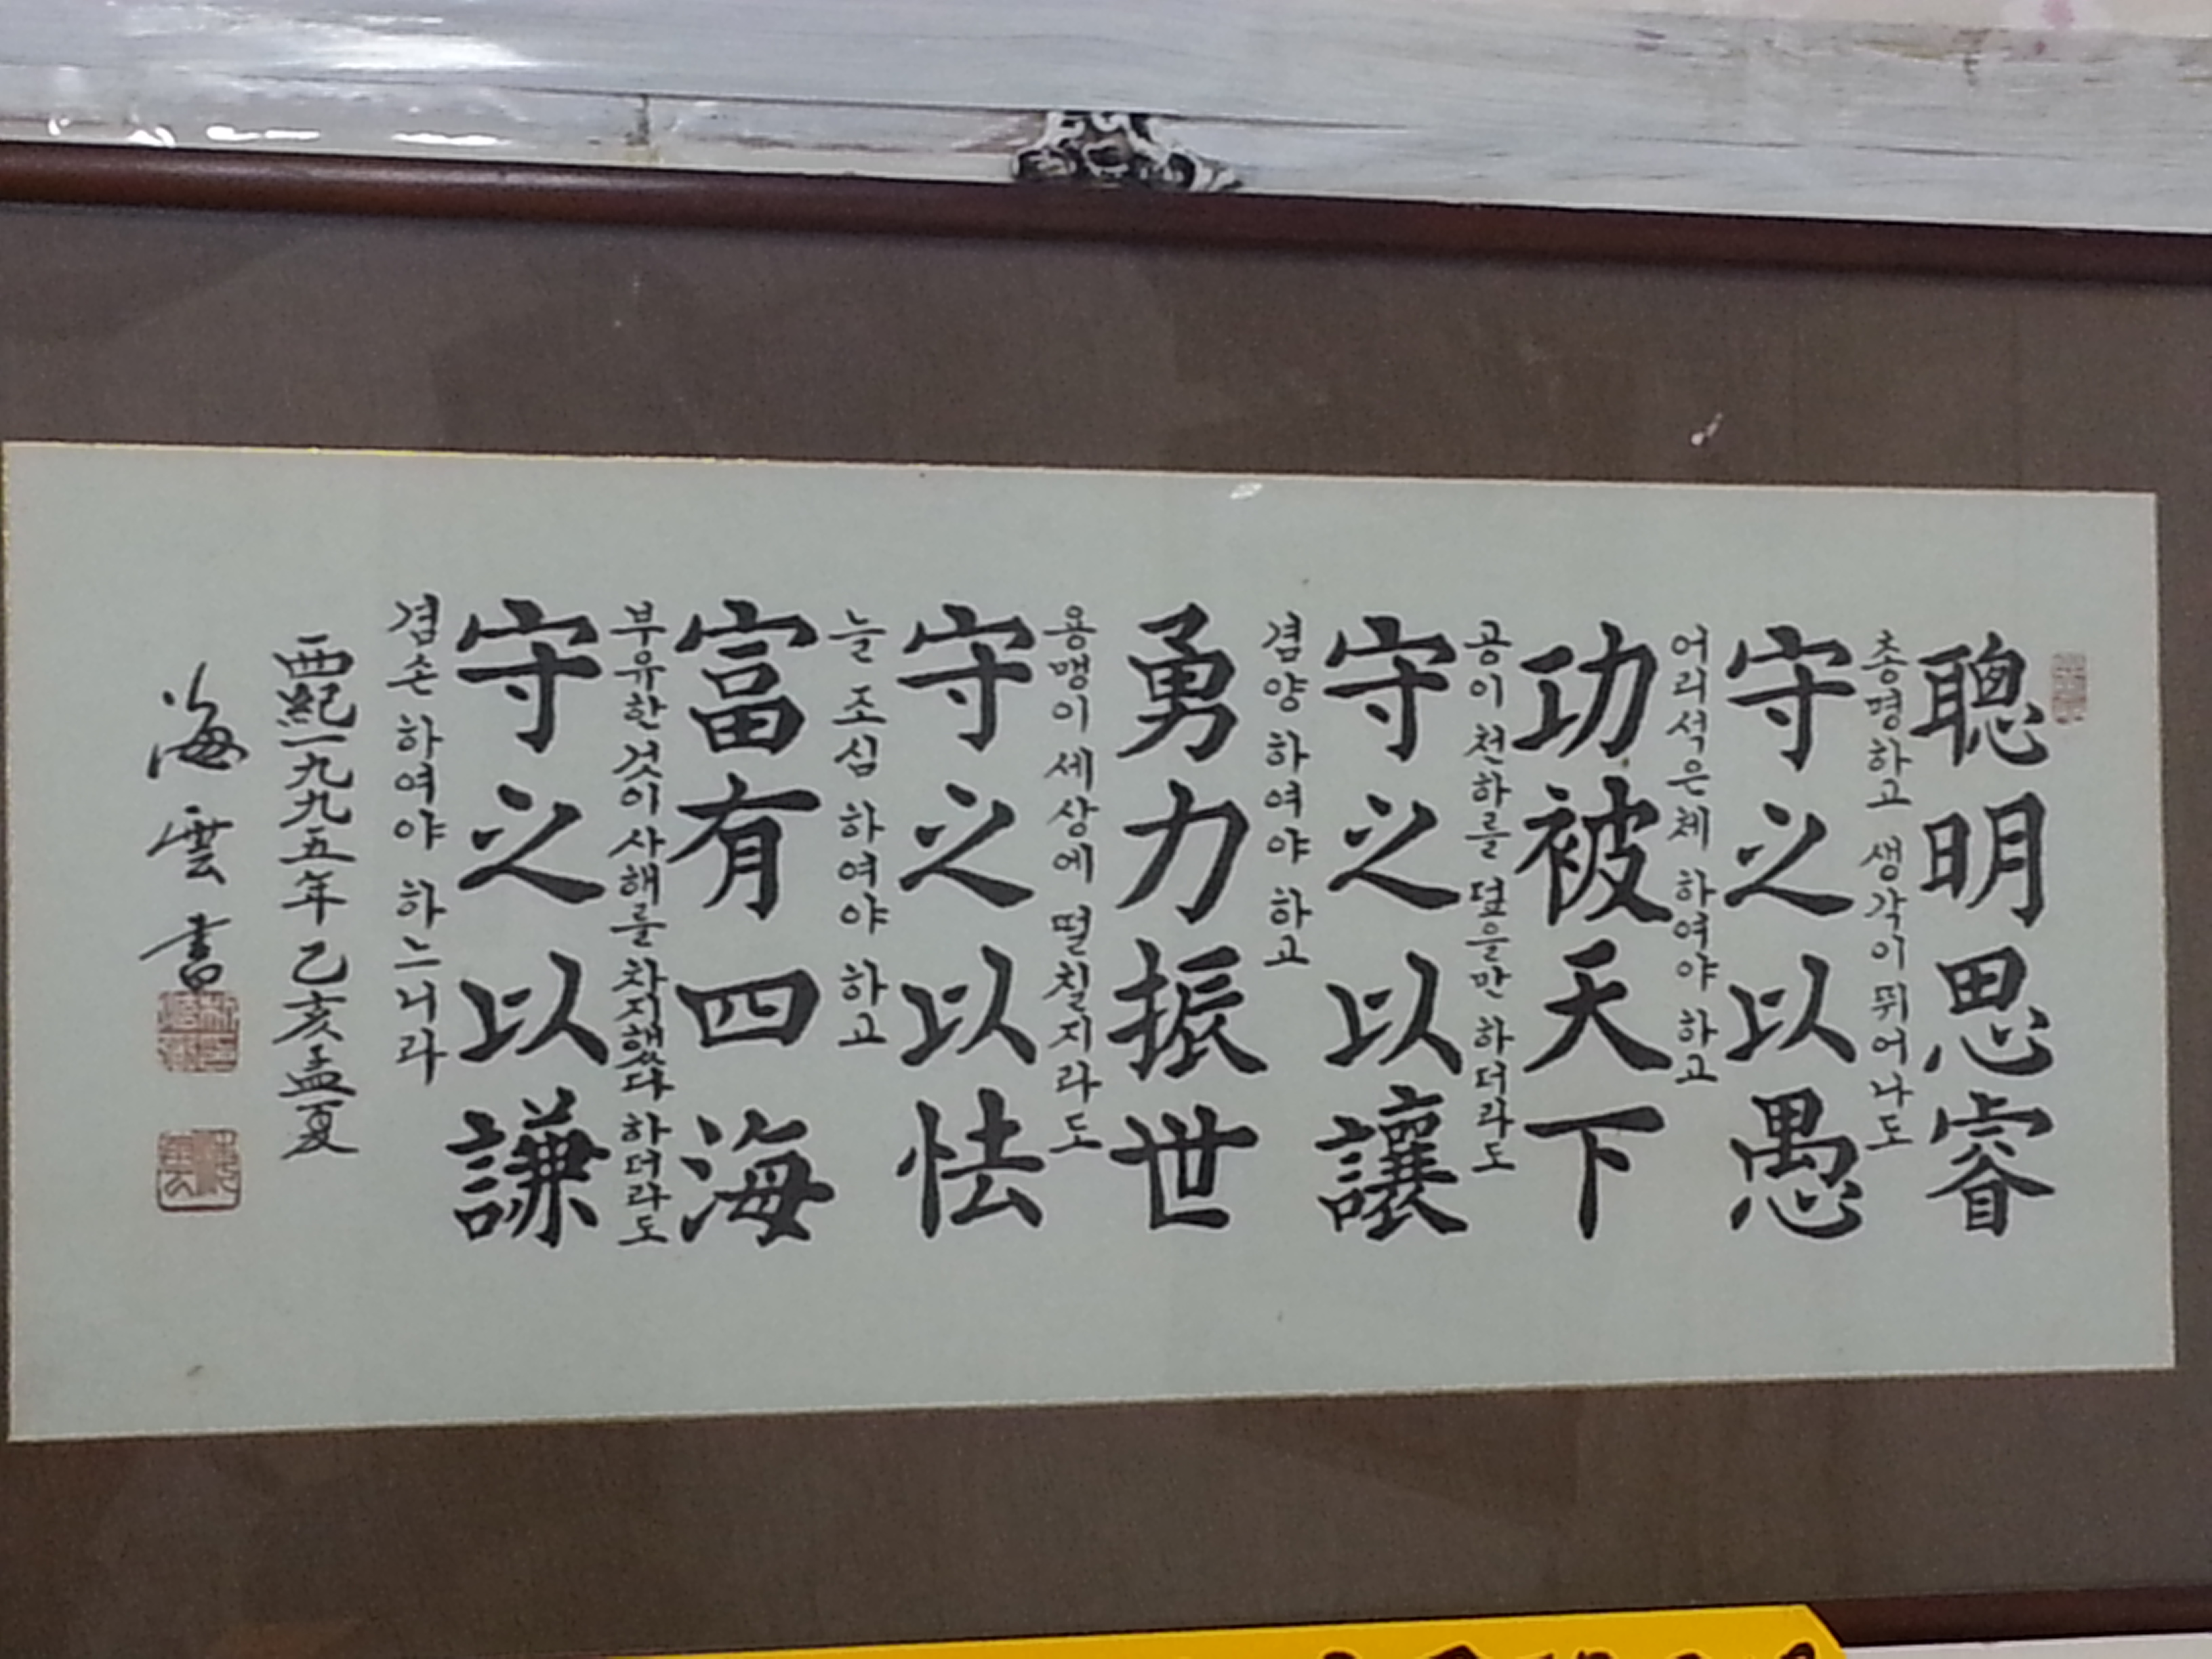 聰明思睿
총명하고 생각이 뛰어나도
守之以愚
어리석은체 하여야 하고
功被天下
공이 천하를 덮을만 하더라도
守之以讓
겸양 하여야 하고
勇力振世
용맹이 세상에 떨칠지라도
守之以怯
늘 조심 하여야 하고
富有四海
부유한 것이 사해를 차지했다 하더라도
守之以謙
겸손 하여야 하느니라
西紀一九九五年 乙亥孟夏
海雲書